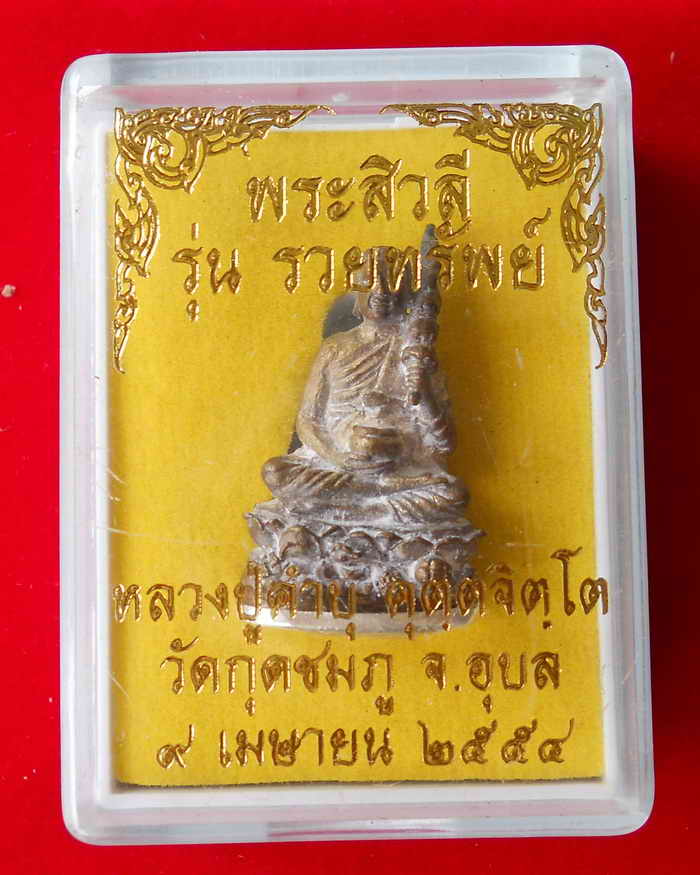 พระสิวลี
รุ่น รวยทรัพย์
หลวงปู่คำบุ คุตฺตจิตฺโต
วัดกุดชมภู จ.อุบล
๙ เมษายน ๒๕๕๔